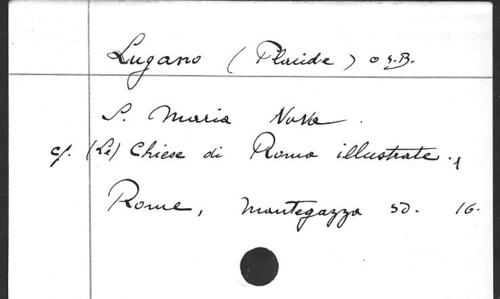 Lugano (Placide) O.S.B.
S. Maria Nova.
cf. (Le) Chiese di Roma illustrate. 1
Rome, Mantegazza SD. 16.